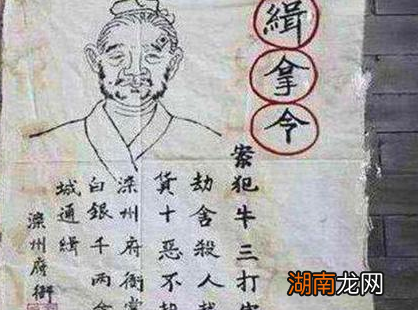 緝拿令
案犯牛三打
劫舍殺人
貨十惡不
滦州府衙
白銀千兩
城通緝
滦州府衙
湖南龙网